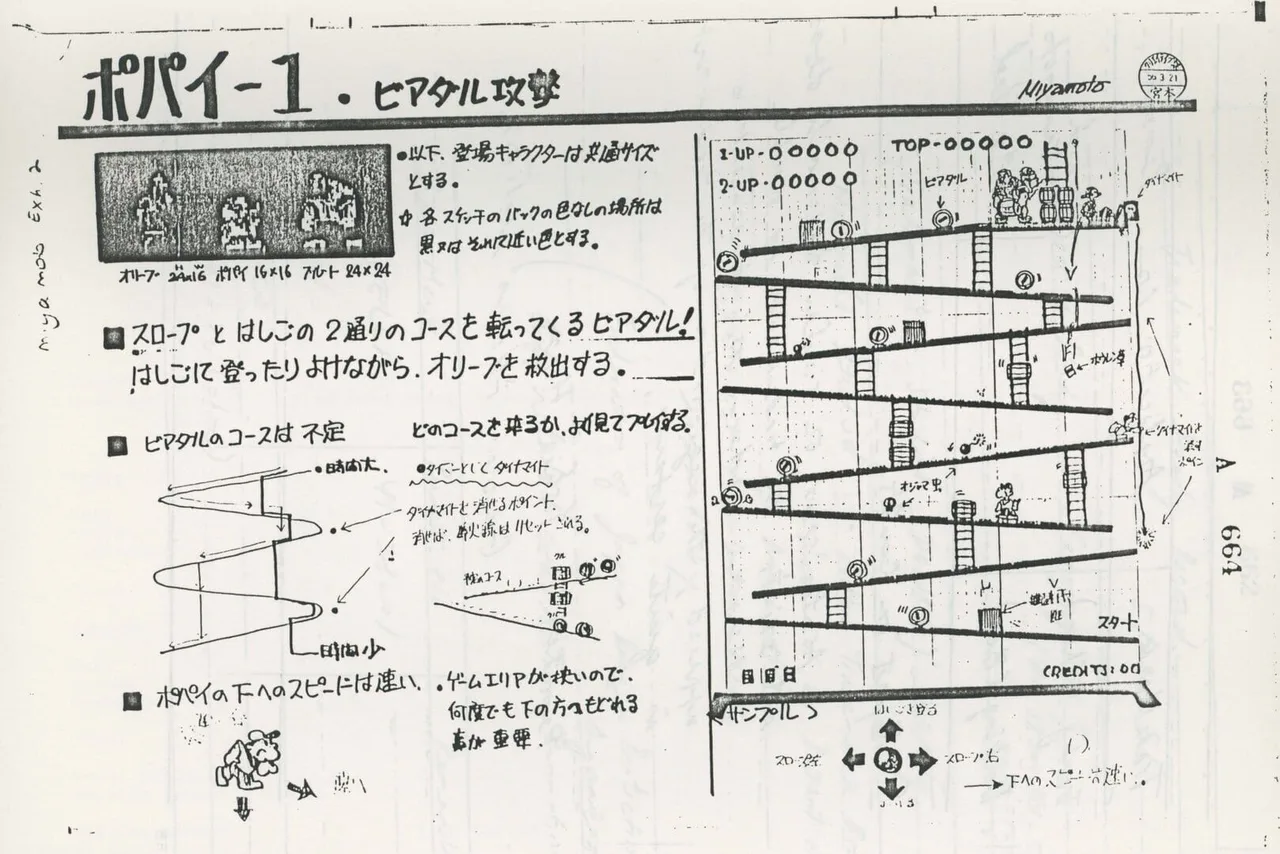 ポパイ-1・ビアダル攻撃
Miyamoto
宮本
Miyamoto Exh. 2
●以下、登場キャラクターは共通サイズ
とする。
オリーブ 24×16 ポパイ 16×16 ブルート 24×24
■スロープとはしごの2通りのコースを転ってくるビアダル!
はしごにて登ったりよけながら、オリーブを救出する。
■ビアダルのコースは不定
どのコースを来るか、よく見てプレイする。
・時間大.
●タイマーとしてダイナマイト
ダイナマイトを消せるポイント.
消せば、導火線はリセットされる。
時間少
■ポパイの下へのスピードは速い.
・ゲームエリアが狭いので、
何度でも下の方へもどれる
事が重要.
速い
1-UP-00000
TOP-00000
2-UP-00000
ビアダル
ダイナマイト
オジャマ虫
スタート
CREDITS:00
サンプル
はしごを登る
スロープ左
スロープ右
→下へのスピードは速い.
A 664